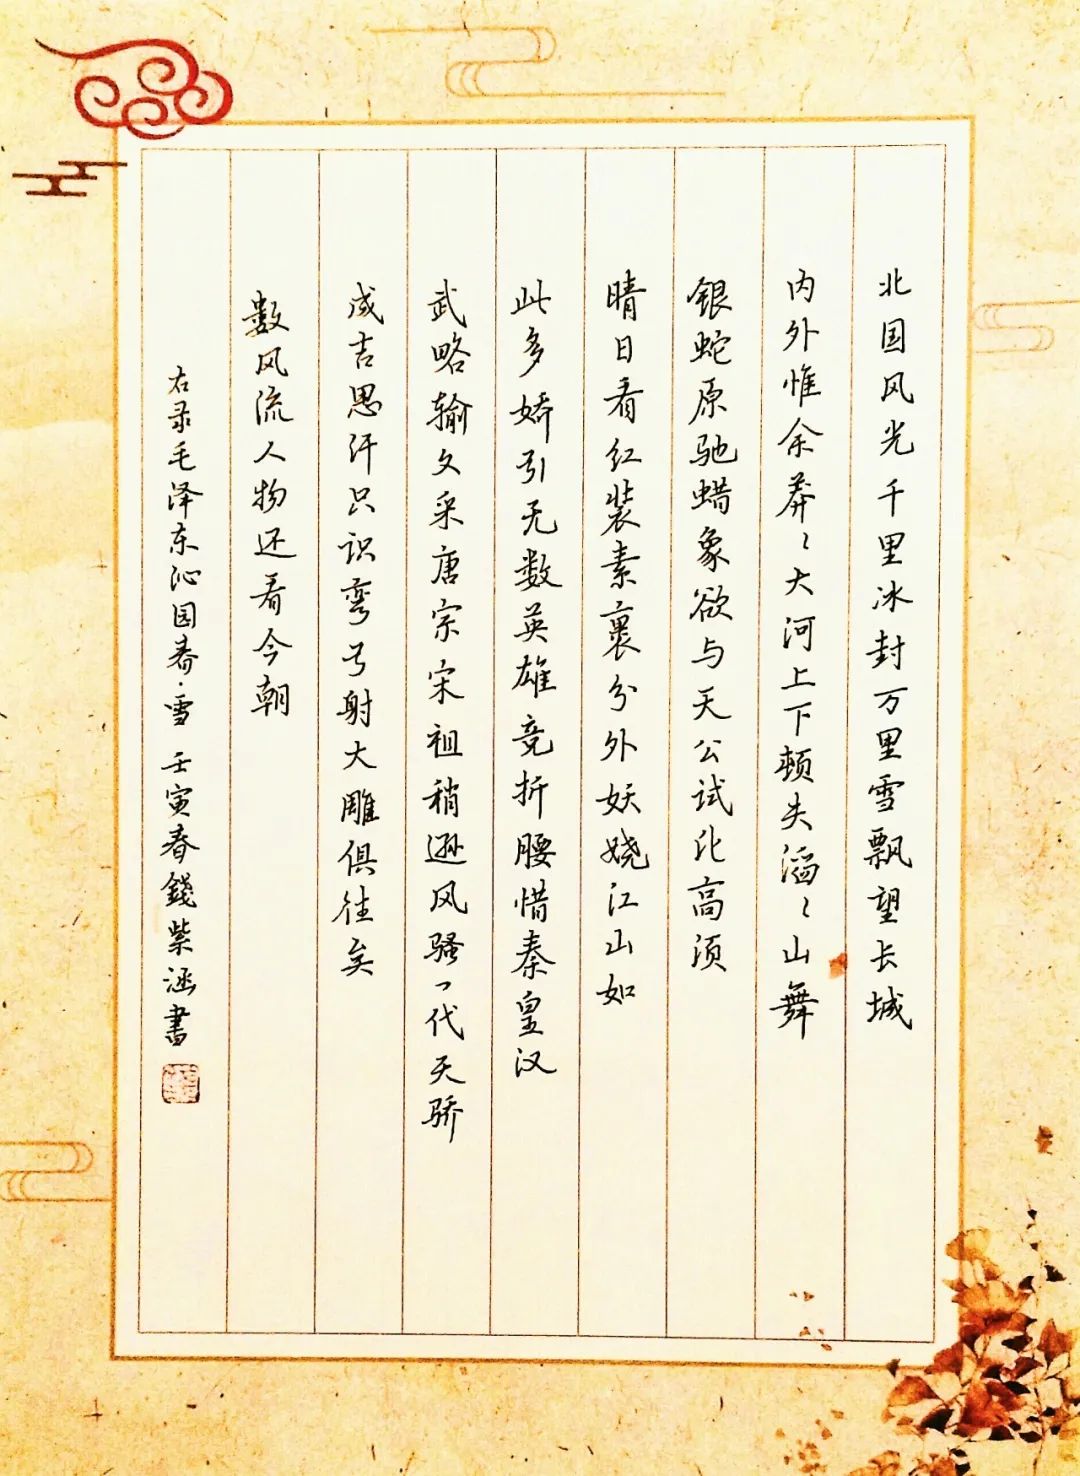 北国风光千里冰封万里雪飘望长城
内外惟余莽〻大河上下顿失滔〻山舞
银蛇原驰蜡象欲与天公试比高须
晴日看红装素裹分外妖娆江山如
此多娇引无数英雄竞折腰惜秦皇汉
武略输文采唐宗宋祖稍逊风骚一代天骄
成吉思汗只识弯弓射大雕俱往矣
數风流人物还看今朝
右录毛泽东沁园春·雪 壬寅春錢紫涵書